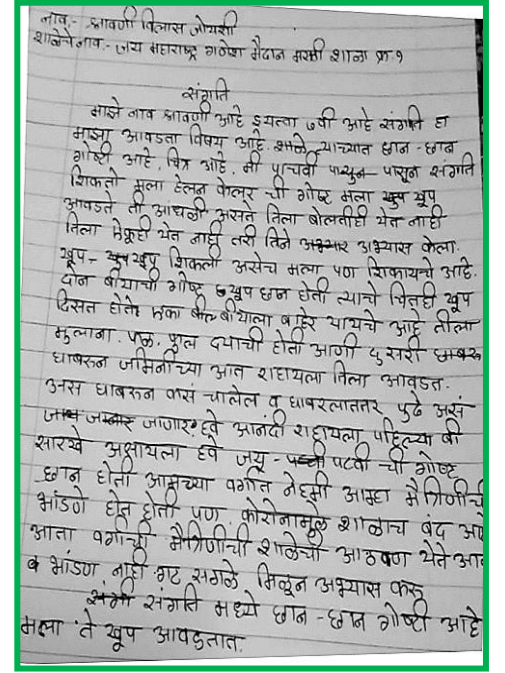 नाव.- श्रावणी विलास जोयशी
शाळेचे नाव.- जय महाराष्ट्र गणेश मैदान मराठी शाळा क्र.१
संगति
माझे नाव श्रावणी आहे इयत्ता ७वी आहे संगति हा
माझा आवडता विषय आहे. शाळे त्याच्यात छान-छान
गोष्टी आहे. चित्र आहे. मी पाचवी पासुन- पासून संगति
शिकतो मला हेलन केलर ची गोष्ट मला खुप खूप
आवडते ती आधळी असते तिला बोलतीही येत नाही
तिला मेकुही येत नाही तरी तिने अभ्यास केला.
खूप- खूप शिकली असेच मला पण शिकायचे आहे.
दोन बीयाची गोष्ट खूप छान होती त्याचे चितही खूप
दिसत होते एका बीयाला बाहेर यायचे आहे तीला
मुलाना. फळ. फुल दयाची होती आणी दुसरी
घाबरून जमिनीच्या आत राहायला तिला आवडत.
अस घाबरून कसं चालेल व घाबरलातर पुढे असं
जागार हवे आनंदी राहायला पहिल्या बी
सारखे असायला हवे जयू- पटवी ची गोष्ट
छान होती आमच्या वर्गात नेहमी आम्हा मैत्रिणीची
भांडणे होत होती पण कोरोनामुळे शाळाच बंद
आता वर्गाची मैत्रिणीची शाळेची आठवण येते
व भांडण नाही गट सगळे मिळून अभ्यास करू
संगति मध्ये छान-छान गोष्टी आहे
मला ते खूप आवडतात.